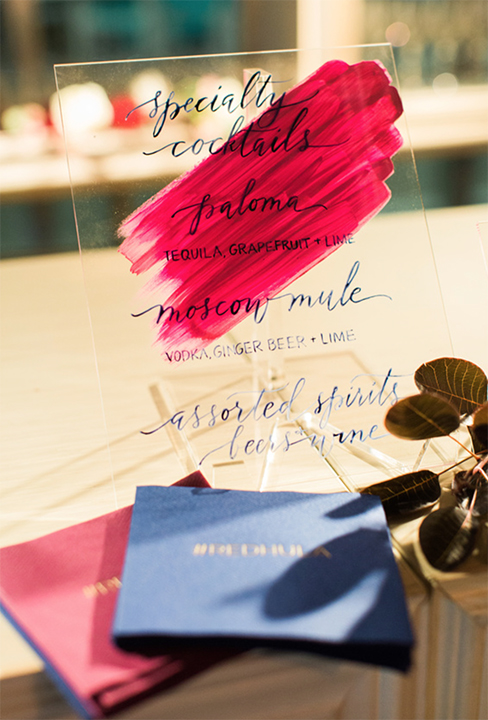 specialty
cocktails
paloma
TEQUILA, GRAPEFRUIT + LIME
moscow mule
VODKA, GINGER BEER + LIME
assorted spirits
beers + wine